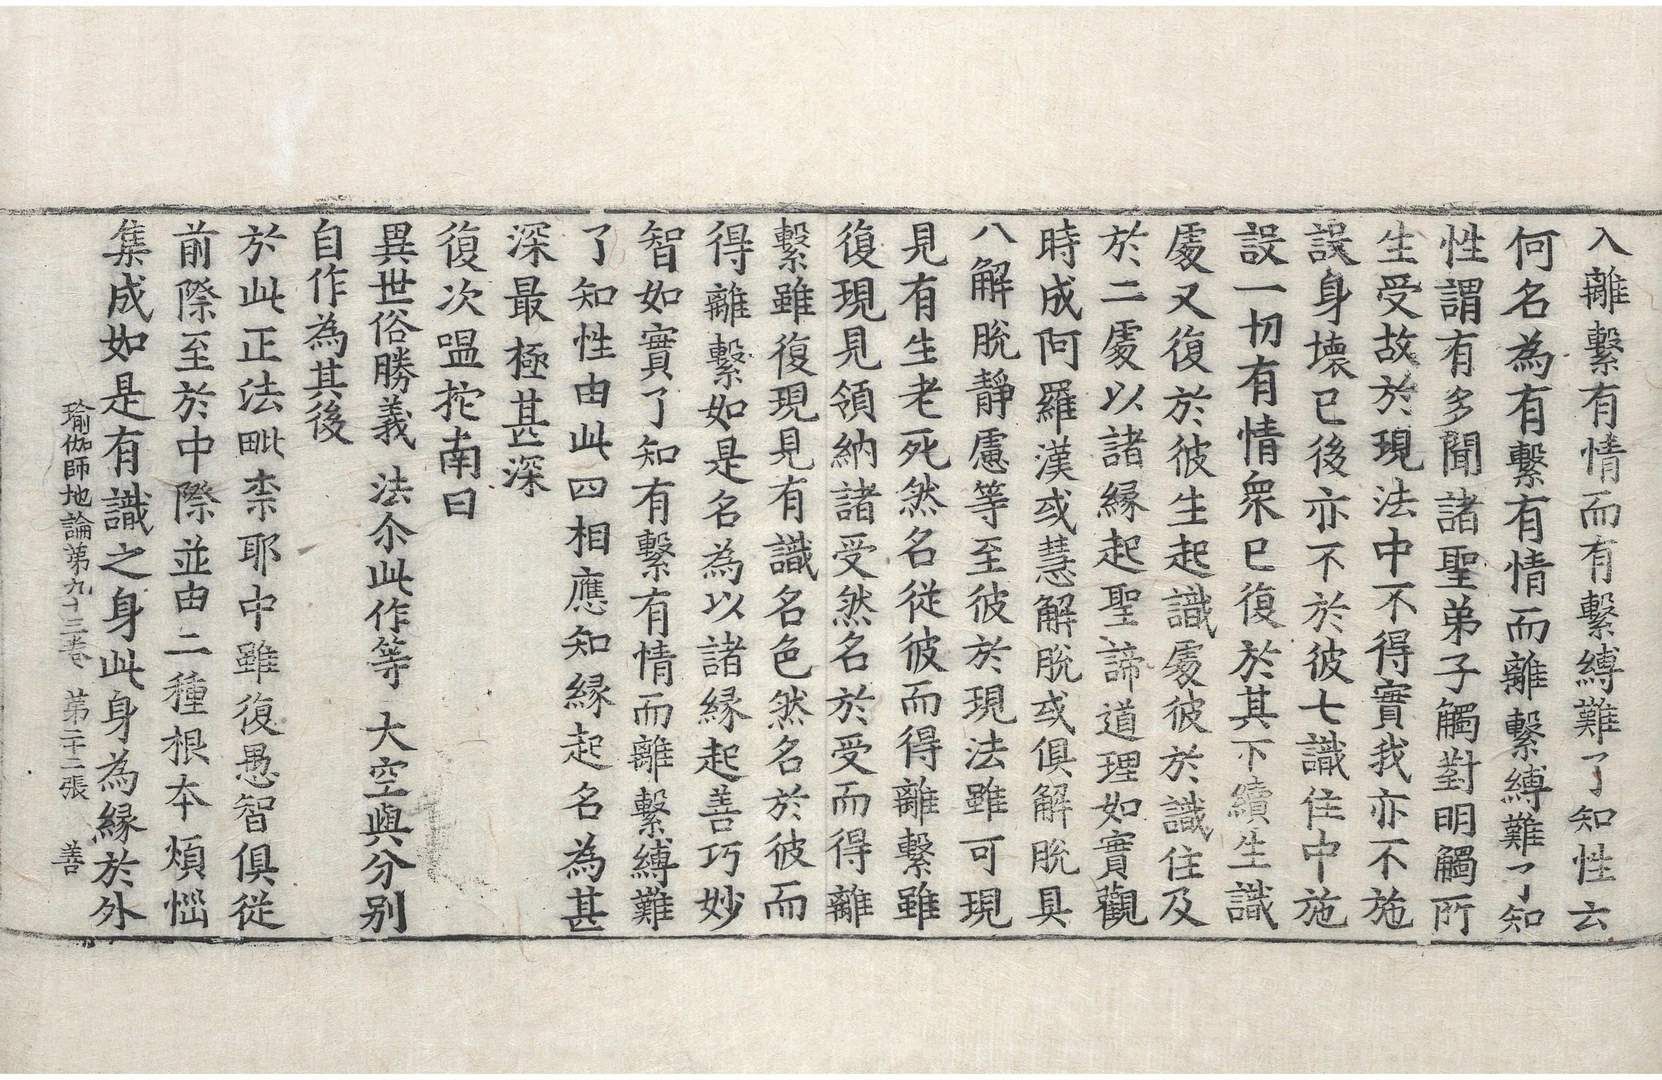 入離繫有情而有繫縛難了知性云
何名為有繫有情而離繫縛難了知
性謂有多聞諸聖弟子觸對明觸所
生受故於現法中不得實我亦不施
設身壞已後亦不於彼七識住中施
設一切有情衆已復於其下續生識
處又復於彼生起識處彼於識住及
於二處以諸縁起聖諦道理如實觀
時成阿羅漢或慧解脫或俱解脫具
八解脫靜慮等至彼於現法雖可現
見有生老死然名從彼而得離繫雖
復現見領納諸受然名於受而得離
繫雖復現見有識名色然名於彼而
得離繫如是名為以諸縁起善巧妙
智如實了知有繫有情而離繫縛難
了知性由此四相應知縁起名為甚
深最極甚深
復次嗢拕南曰
異世俗勝義 法尒此作等 大空與分別
自作為其後
於此正法毗柰耶中雖復愚智俱從
前際至於中際並由二種根本煩惱
集成如是有識之身此身為縁於外
瑜伽師地論第九十三卷 第二十二張 善